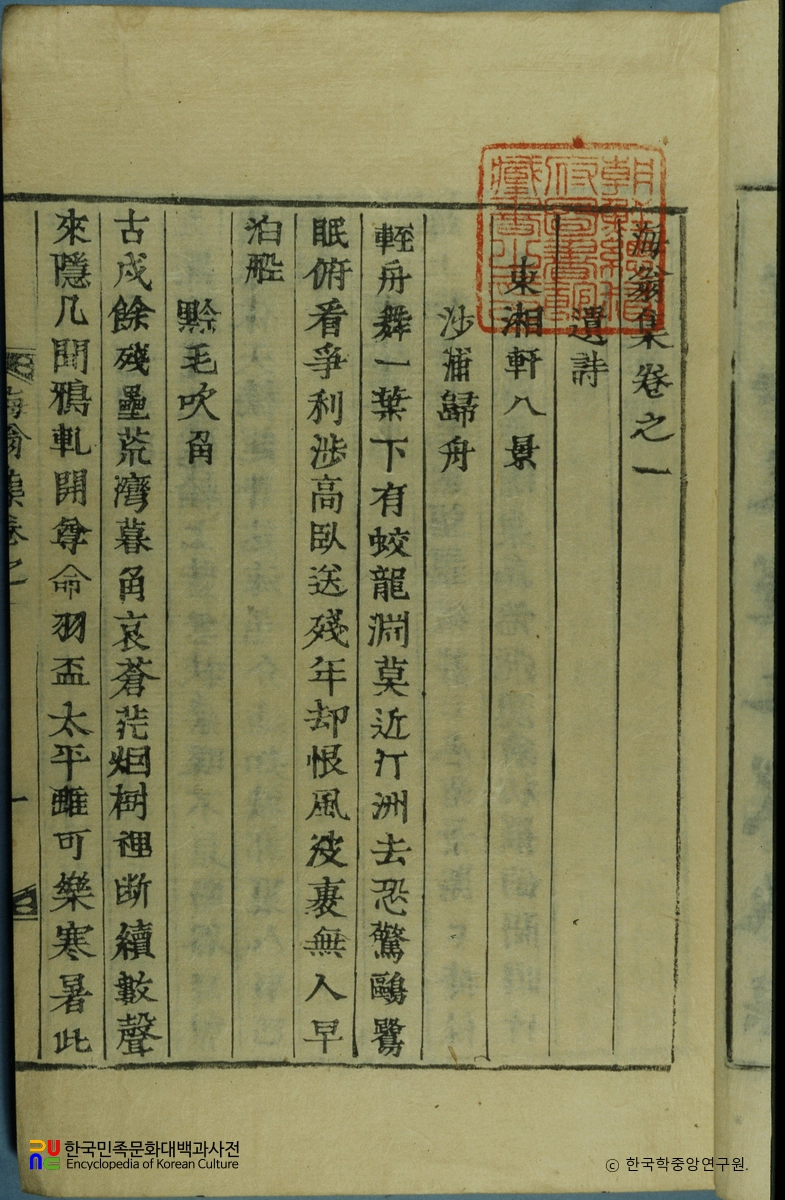 海翁集卷之一
遺詩
東湘軒八景
沙浦歸舟
輕舟舞一葉下有蛟龍淵莫近汀洲去恐驚鷗鷺
眠俯看爭利涉高臥送殘年却恨風波裏無人早
泊船
黔毛吹角
古戍餘殘壘荒灣暮角哀蒼茫烟樹裡断續數聲
來隱几聞鴉軋開尊命羽盃太平雖可樂寒暑此
海翁集卷之一
一
한국민족문화대백과사전
Encyclopedia of Korean Culture
© 한국학중앙연구원.